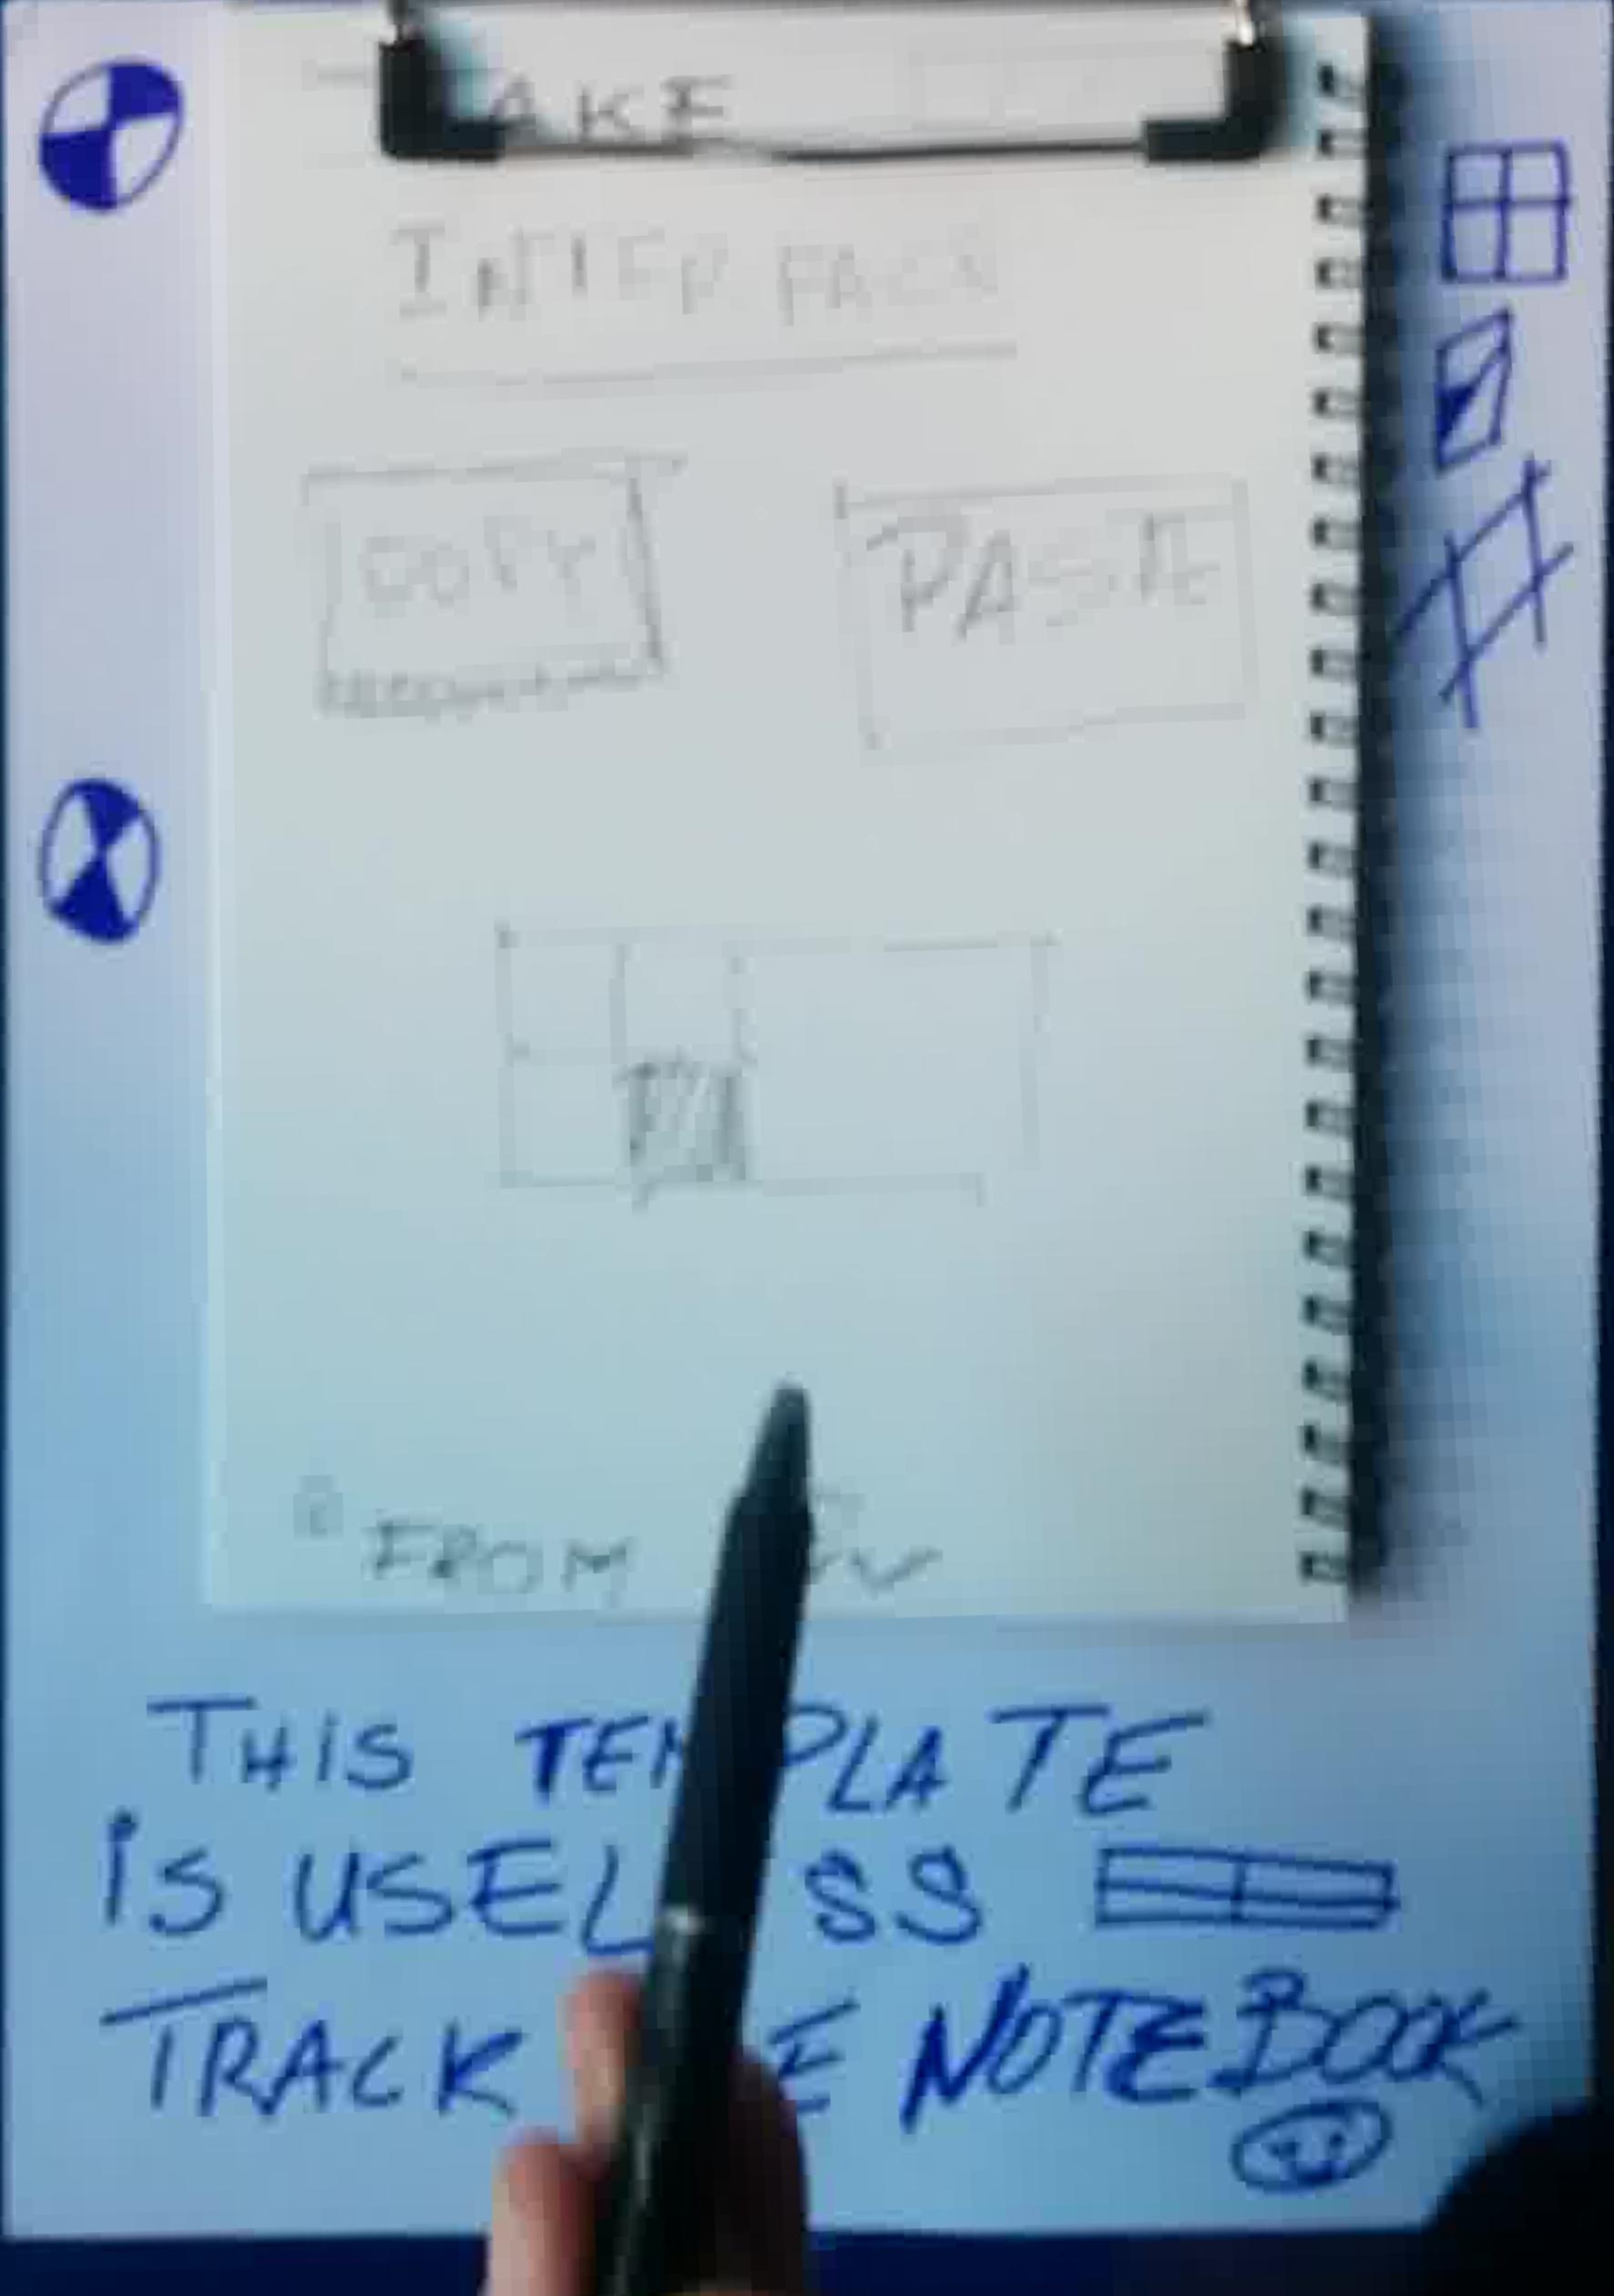 AKE
INTERFACE
COPY
PASTE
FROM
THIS TEMPLATE
IS USELSS
TRACK E NOTEBOOK